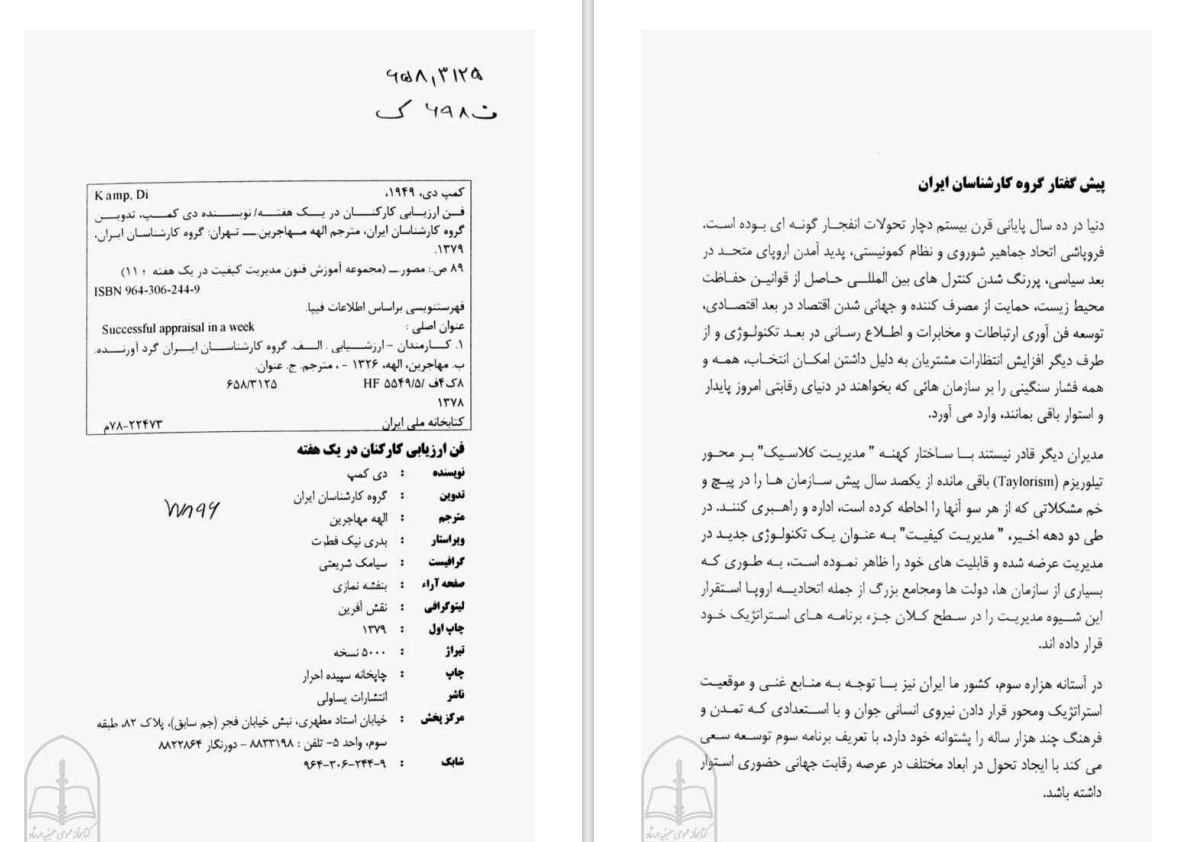 ۶۵۸,۳۱۲۵
ک ۶۹۸ ف
کمپ دی، ۱۹۴۹، Kamp, Di
فـن ارزیـابی کارکنـان در یـک هفتـه/ نویسـنده دی کمـپ، تدویـن
گروه کارشناسان ایران، مترجم الهه مهاجرین.ــ تهران: گروه کارشناسان ایران،
۱۳۷۹.
۸۹ ص.: مصور.ــ (مجموعه آموزش فنون مدیریت کیفیت در یک هفته ؛ ۱۱)
ISBN 964-306-244-9
فهرستنویسی براساس اطلاعات فیپا.
عنوان اصلی : Successful appraisal in a week
۱. کـارمندان – ارزشـیابی . الـف. گروه کارشناسـان ایـران گرد آورنـده.
ب. مهاجرین، الهه، ۱۳۲۶ - ، مترجم. ج. عنوان.
۸ک۴ف /۵/HF ۵۵۴۹ ۶۵۸/۳۱۲۵
۱۳۷۸
کتابخانه ملی ایران ۷۸-۲۲۴۷۳م
فن ارزیابی کارکنان در یک هفته
نویسنده : دی کمپ
تدوین : گروه کارشناسان ایران
مترجم : الهه مهاجرین
ویراستار : بدری نیک فطرت
گرافیست : سیامک شریعتی
صفحه آراء : بنفشه نمازی
لیتوگرافی : نقش آفرین
چاپ اول : ۱۳۷۹
تیراژ : ۵۰۰۰ نسخه
چاپ : چاپخانه سپیده احرار
ناشر : انتشارات یساولی
مرکز پخش : خیابان استاد مطهری، نبش خیابان فجر (جم سابق)، پلاک ۸۲، طبقه
سوم، واحد ۵- تلفن : ۸۸۳۳۱۹۸ – دورنگار ۸۸۲۲۸۶۴
شابک : ۹۶۴-۳۰۶-۲۴۴-۹
پیش گفتار گروه کارشناسان ایران
دنیا در ده سال پایانی قرن بیستم دچار تحولات انفجـار گونـه ای بـوده اسـت.
فروپاشی اتحاد جماهیر شوروی و نظام کمونیستی، پدید آمدن اروپای متحـد در
بعد سیاسی، پررنگ شدن کنترل های بین المللـی حـاصل از قوانیـن حفـاظت
محیط زیست، حمایت از مصرف کننده و جهانی شدن اقتصاد در بعد اقتصـادی،
توسعه فن آوری ارتباطات و مخابرات و اطـلاع رسـانی در بعـد تکنولـوژی و از
طرف دیگر افزایش انتظارات مشتریان به دلیل داشتن امکـان انتخـاب، همـه و
همه فشار سنگینی را بر سازمان هائی که بخواهند در دنیای رقابتی امروز پایدار
و استوار باقی بمانند، وارد می آورد.
مدیران دیگر قادر نیستند بـا سـاختار کهنـه " مدیریـت کلاسیـک" بـر محـور
تیلوریزم (Taylorism) باقی مانده از یکصد سال پیش سـازمان هـا را در پیـچ و
خم مشکلاتی که از هر سو آنها را احاطه کرده است، اداره و راهـبری کننـد. در
طی دو دهه اخیر، " مدیریـت کیفیـت" بـه عنـوان یـک تکنولـوژی جدیـد در
مدیریت عرضه شده و قابلیت های خود را ظاهر نمـوده اسـت، بـه طـوری کـه
بسیاری از سازمان ها، دولت ها ومجامع بزرگ از جمله اتحادیـه اروپـا اسـتقرار
این شـیوه مدیریـت را در سـطح کـلان جـزء برنامـه هـای اسـتراتژیک خـود
قرار داده اند.
در آستانه هزاره سوم، کشور ما ایران نیز بـا توجـه بـه منـابع غنـی و موقعیـت
استراتژیک ومحور قرار دادن نیروی انسانی جوان و با اسـتعدادی کـه تمـدن و
فرهنگ چند هزار ساله را پشتوانه خود دارد، با تعریف برنامه سوم توسـعه سـعی
می کند با ایجاد تحول در ابعاد مختلف در عرصه رقابت جهانی حضوری اسـتوار
داشته باشد.